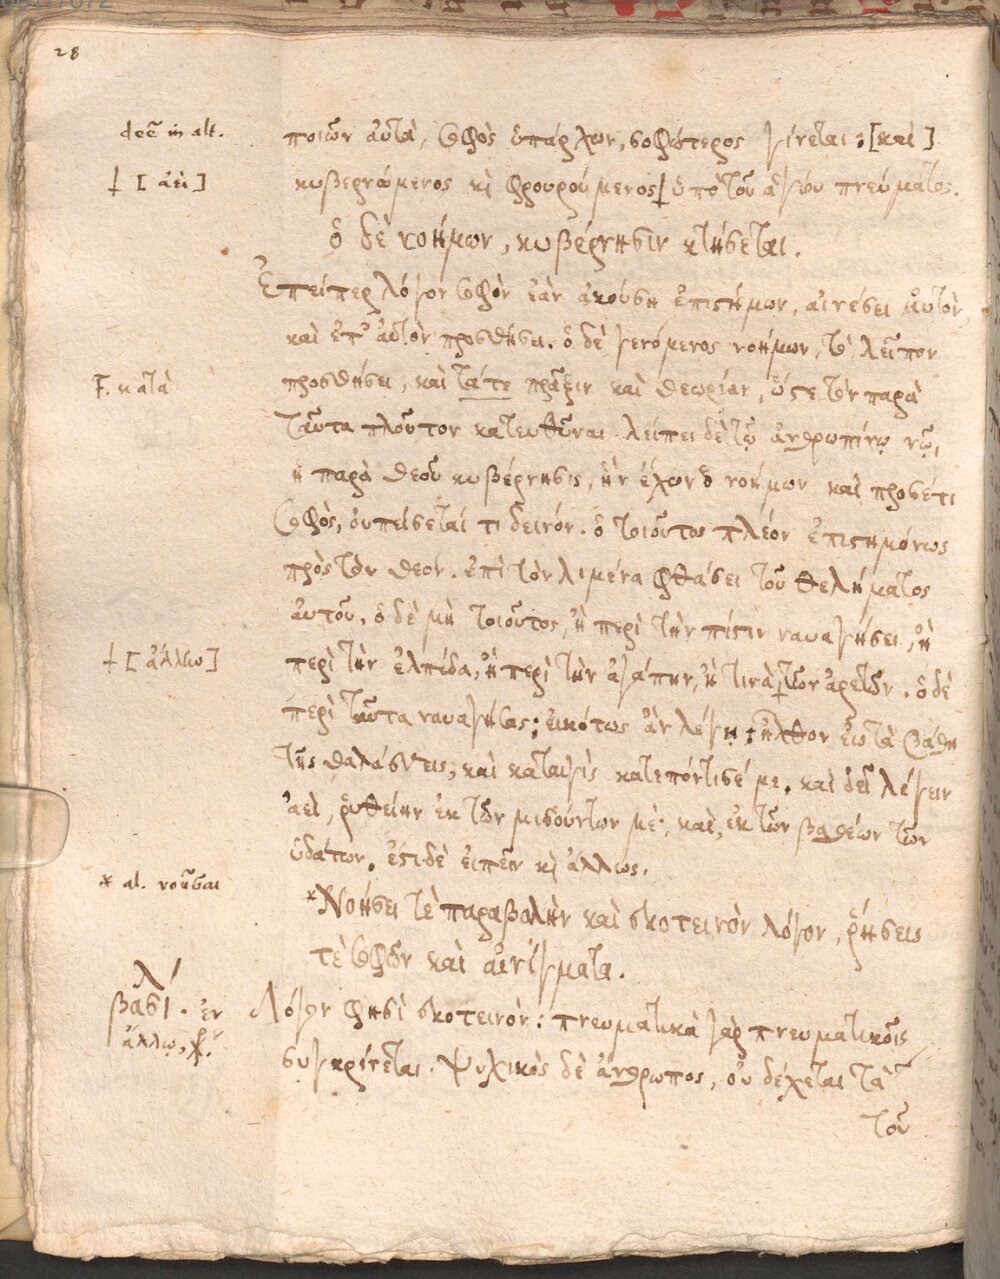 28
deē in alt.
ποιῶν αὐτὰ, σοφὸς ὑπάρχων, σοφώτερος γίνεται : [καὶ]
† [ἀεὶ]
κυβερνώμενος κὶ φρουρούμενος† ὑπὸ τοῦ ἁγίου πνεύματος.
ὁ δὲ νοήμων, κυβέρνησιν κτήσεται.
Ἐπείπερ λόγον σοφὸν ἐὰν ἀκούσῃ ἐπιστήμων, αἰνέσει αὐτὸν,
καὶ ἐπ' αὐτὸν προσθήσει. ὁ δὲ γενόμενος νοήμων, τὸ λεῖπον
F. κατὰ
προσθήσει, καὶ τά τε πρᾶξιν καὶ θεωρίαν, ὥστε τὸν παρὰ
ταῦτα πλοῦτον κατευθῦναι. λείπει δὲ τῷ ἀνθρωπίνῳ νῷ,
ἡ παρὰ Θεοῦ κυβέρνησις, ἣν ἔχων ὁ νοήμων καὶ προσέτι
σοφὸς, οὐ πείσεταί τι δεινόν. ὁ τοιοῦτος πλέον ἐπιστημόνως
πρὸς τὸν Θεόν. ἐπὶ τὸν λιμένα φθάσει τοῦ θελήματος
αὐτοῦ, ὁ δὲ μὴ τοιοῦτος, ἢ περὶ τὴν πίστιν ναυαγήσει, ἢ
† [ἄλλων]
περὶ τὴν ἐλπίδα, ἢ περὶ τὴν ἀγάπην, ἢ τινὰ† τῶν ἀρετῶν. ὁ δὲ
περὶ ταῦτα ναυαγήσας; εἰκότως ἂν λέγῃ; ἦλθον εἰς τὰ βάθη
τῆς θαλάσσης, καὶ καταιγὶς κατεπόντισέ με. καὶ δεῖ λέγειν
ἀεὶ, ῥυθείην ἐκ τῶν μισούντων μέ· καὶ, ἐκ τῶν βαθέων τῶν
ὑδάτων. ἔστι δὲ εἰπεῖν κὶ ἄλλως.
* al. νοῆσαι
*Νοήσει τὲ παραβολὴν καὶ σκοτεινὸν λόγον, ῥήσεις
τὲ σοφῶν καὶ αἰνίγματα.
βασι. ἐν
ἄλλῳ,
Λόγον φησὶ σκοτεινὸν : πνευματικὰ γὰρ πνευματικοῖς
συγκρίνεται. Ψυχικὸς δὲ ἄνθρωπος, οὐ δέχεται τὰ
τοῦ